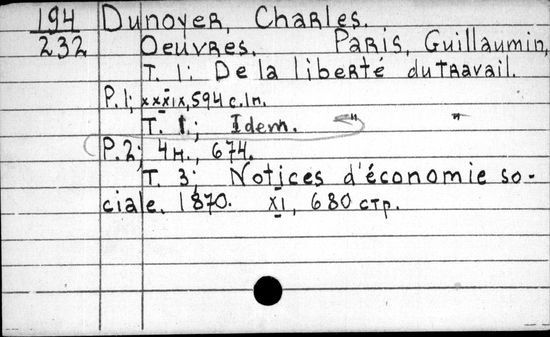 194 Dunoyer, Charles.
232 Oeuvres. Paris, Guillaumin,
T. 1: De la liberté du travail.
P. 1; xxxix, 594 c. In.
T. 1.; Idem. " "
P. 2; 4 н., 674.
T. 3; Notices d'économie so-
ciale. 1870. XI, 680 стр.